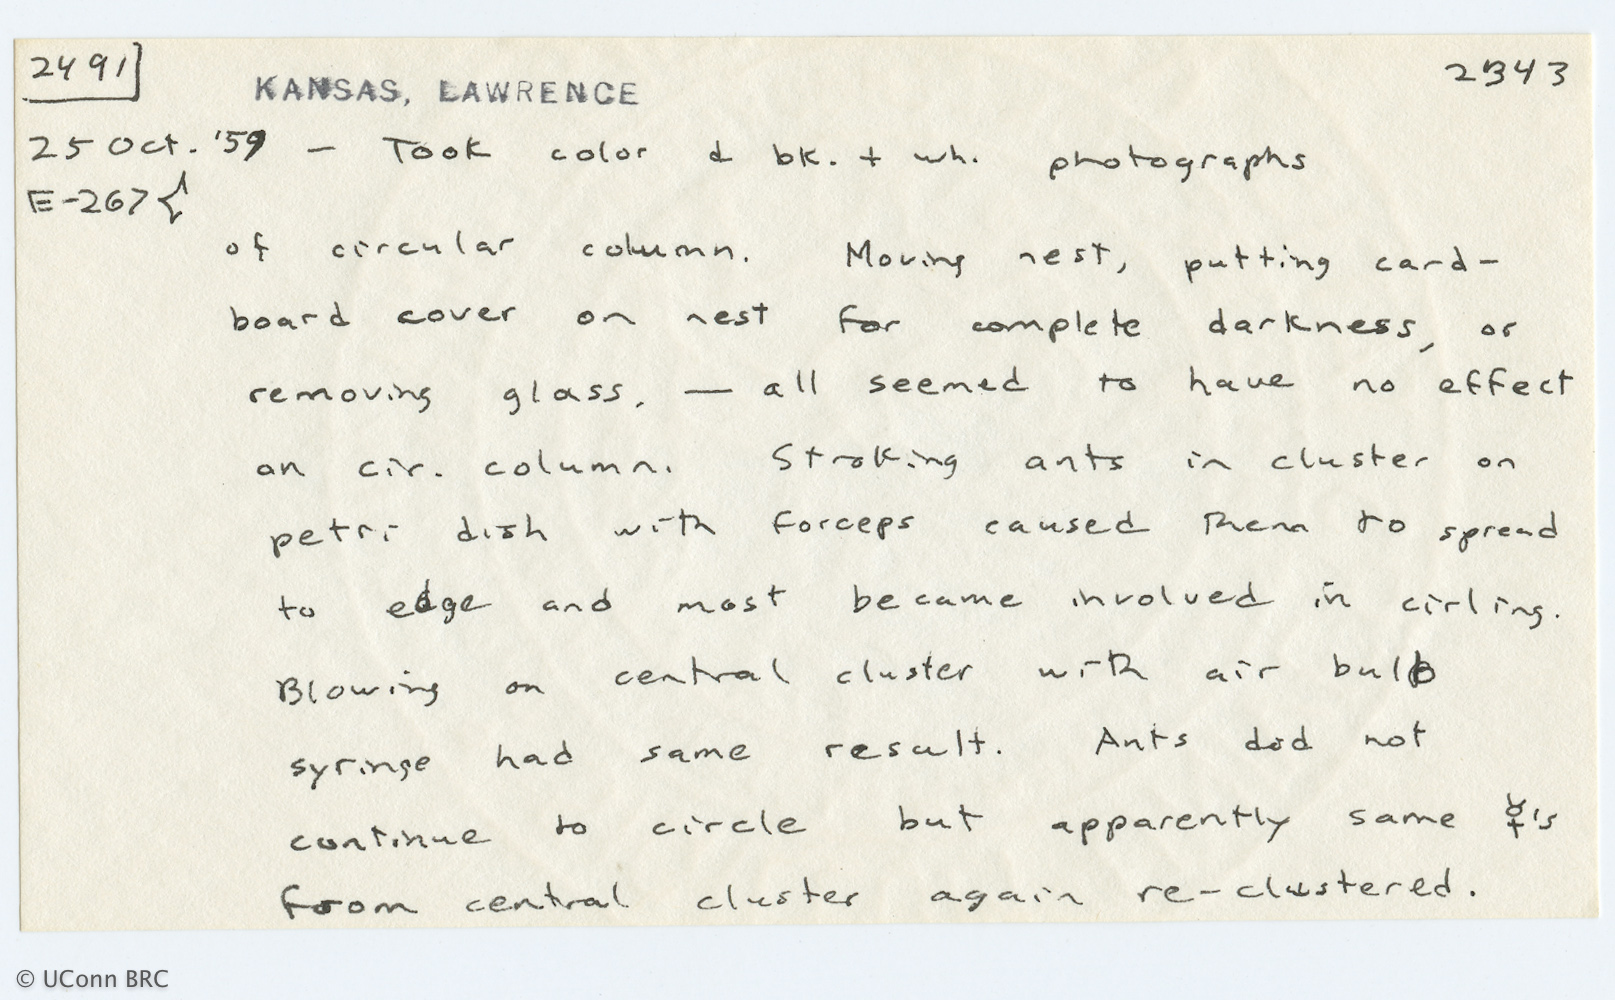 2491
2343
KANSAS, LAWRENCE
25 Oct. '59 — Took color & bk. + wh. photographs
E-267{
of circular column. Moving nest, putting card-
board cover on nest for complete darkness, or
removing glass, — all seemed to have no effect
on cir. column. Stroking ants in cluster on
petri dish with forceps caused them to spread
to edge and most became involved in cirling.
Blowing on central cluster with air bulb
syringe had same result. Ants did not
continue to circle but apparently same ☿'s
from central cluster again re-clustered.
© UConn BRC